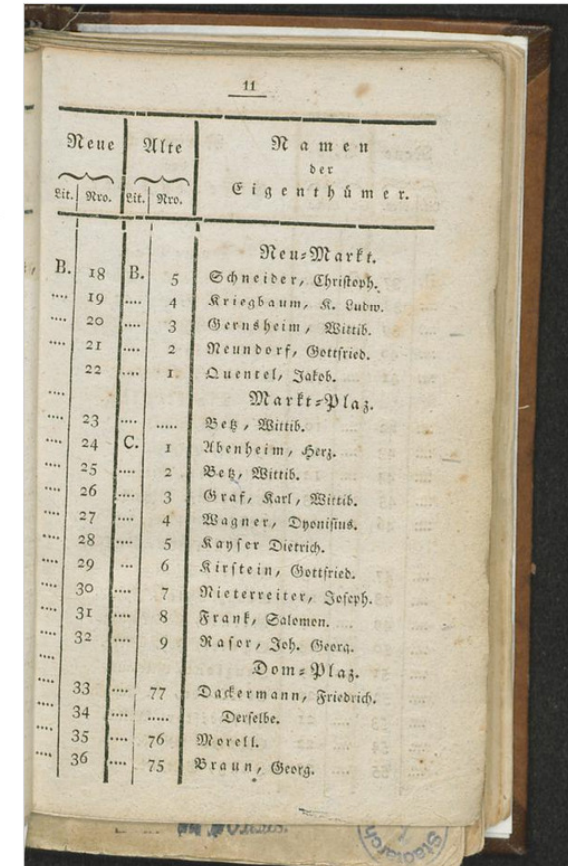 11
Neue Alte Namen
der
Eigenthümer.
Lit. Nro. Lit. Nro.
Neu-Markt.
B. 18 B. 5 Schneider, Christoph.
.... 19 .... 4 Kriegbaum, K. Ludw.
.... 20 .... 3 Gernsheim, Wittib.
.... 21 .... 2 Neundorf, Gottfried.
.... 22 .... 1. Quentel, Jakob.
.... Markt-Plaz.
.... 23 .... ..... Betz, Wittib.
.... 24 C. 1 Abenheim, Herz.
.... 25 .... 2 Betz, Wittib.
.... 26 .... 3 Graf, Karl, Wittib.
.... 27 .... 4 Wagner, Dyonisius.
.... 28 .... 5 Kayser Dietrich.
.... 29 ... 6 Kirstein, Gottfried.
.... 30 .... 7 Nieterreiter, Joseph.
.... 31 .... 8 Frank, Salomon.
.... 32 .... 9 Rasor, Joh. Georg.
.... Dom-Plaz.
.... 33 .... 77 Dackermann, Friedrich.
.... 34 .... ..... Derselbe.
.... 35 .... 76 Morell.
.... 36 .... 75 Braun, Georg.
Stadtarch